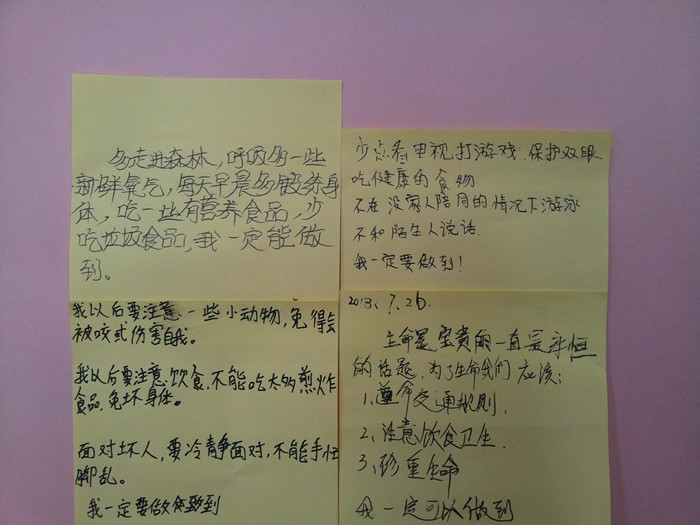 多走进森林，呼吸多一些
新鲜氧气，每天早晨多锻练身
体，吃一些有营养食品，少
吃垃圾食品，我一定能做
到。
少点看电视打游戏.保护双眼.
吃健康的食物
不在没家人陪同的情况下游泳
不和陌生人说话.
我一定要做到！
我以后要注意一些小动物，免得会
被咬或伤害自我。
我以后要注意饮食，不能吃太多煎炸
食品，免坏身体。
面对坏人，要冷静面对，不能手忙
脚乱。
我一定要做到
2013.7.26.
生命是宝贵的一直是永恒
的话题，为了生命我们应该：
1、遵命交通规则.
2、注意饮食卫生.
3、珍重生命
我一定可以做到